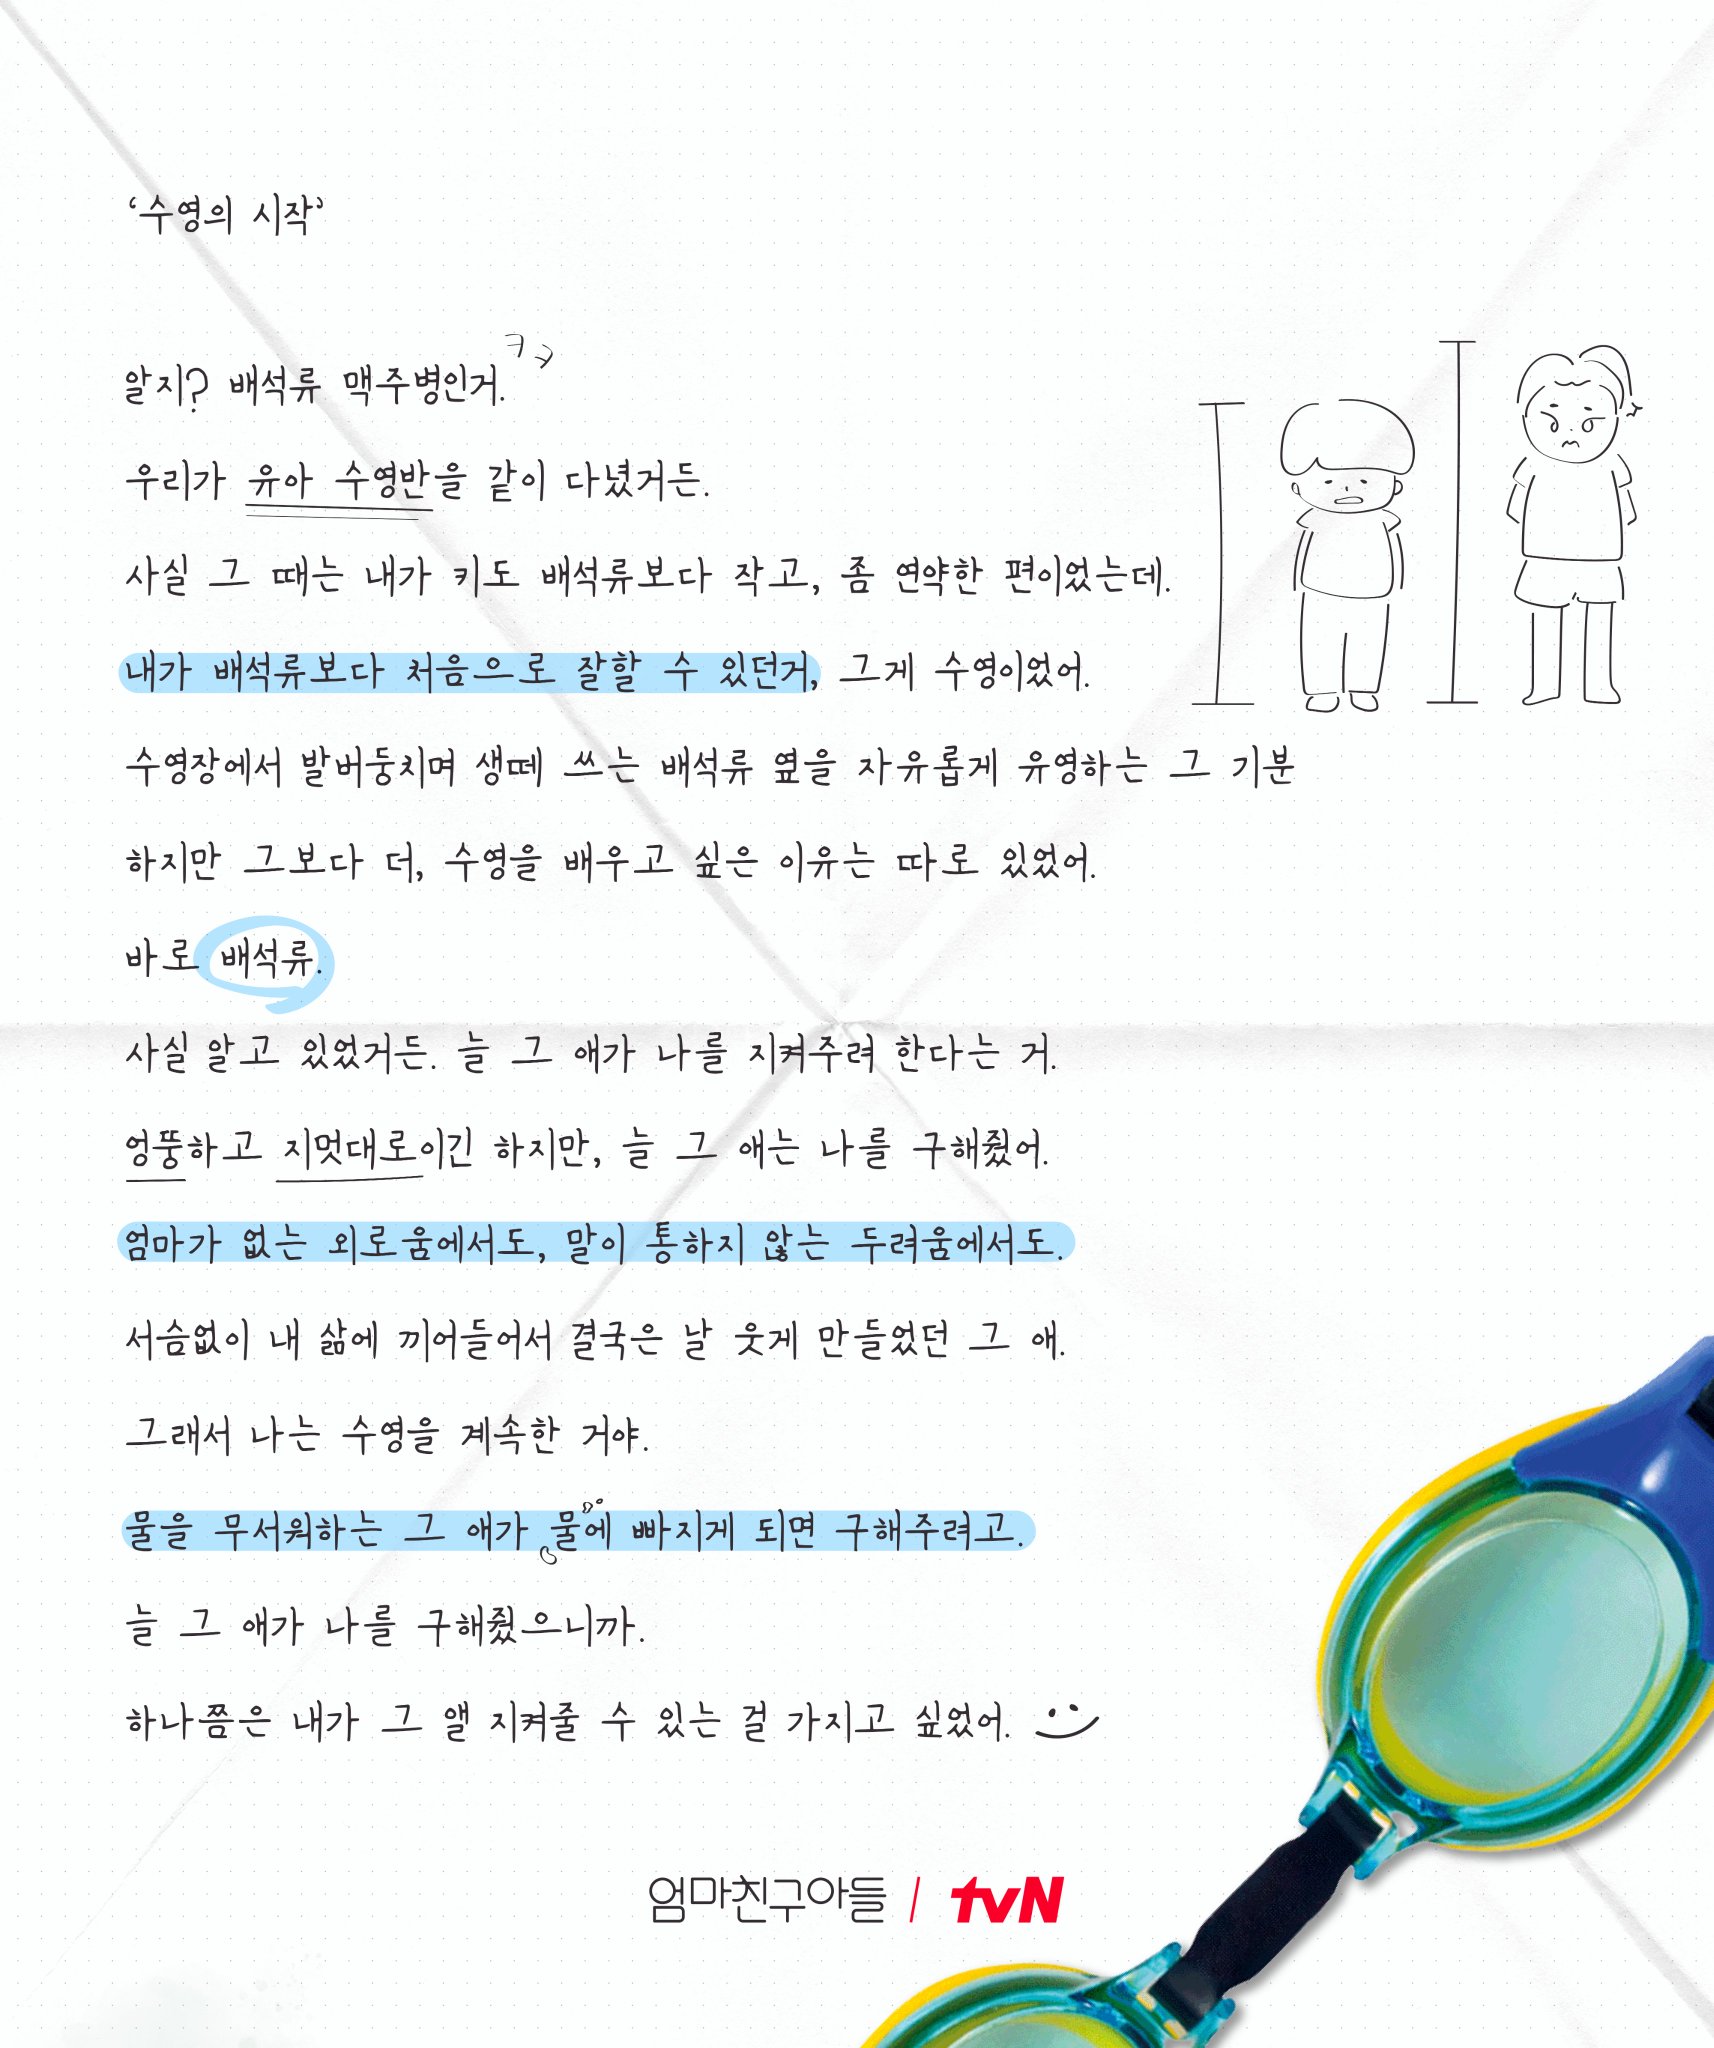 ‘수영의 시작’
알지? 배석류 맥주병인거. ㅋㅋ
우리가 유아 수영반을 같이 다녔거든.
사실 그 때는 내가 키도 배석류보다 작고, 좀 연약한 편이었는데.
내가 배석류보다 처음으로 잘할 수 있던거, 그게 수영이었어.
수영장에서 발버둥치며 생떼 쓰는 배석류 옆을 자유롭게 유영하는 그 기분
하지만 그보다 더, 수영을 배우고 싶은 이유는 따로 있었어.
바로 배석류.
사실 알고 있었거든. 늘 그 애가 나를 지켜주려 한다는 거.
엉뚱하고 지멋대로이긴 하지만, 늘 그 애는 나를 구해줬어.
엄마가 없는 외로움에서도, 말이 통하지 않는 두려움에서도.
서슴없이 내 삶에 끼어들어서 결국은 날 웃게 만들었던 그 애.
그래서 나는 수영을 계속한 거야.
물을 무서워하는 그 애가 물에 빠지게 되면 구해주려고.
늘 그 애가 나를 구해줬으니까.
하나쯤은 내가 그 앨 지켜줄 수 있는 걸 가지고 싶었어.
엄마친구아들 / tvN